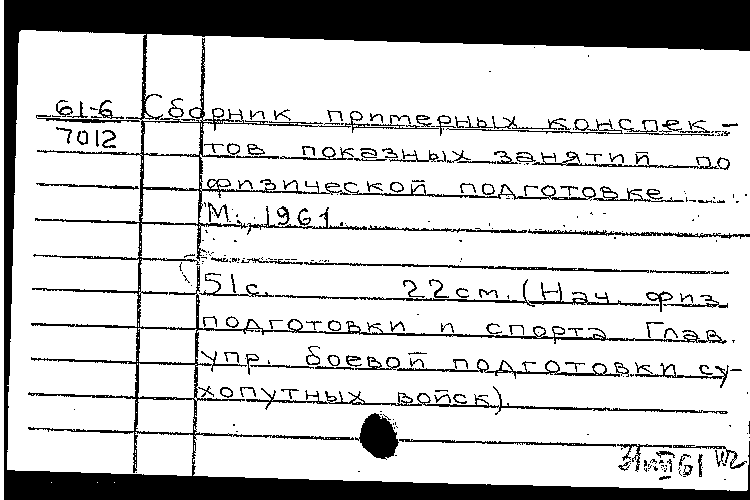 61-6 Сборник примерных конспек-
7012 тов показных занятий по
физической подготовке.
М., 1961.
51с. 22см. (Нач. физ.
подготовки и спорта Глав.
упр. боевой подготовки су-
хопутных войск).
61